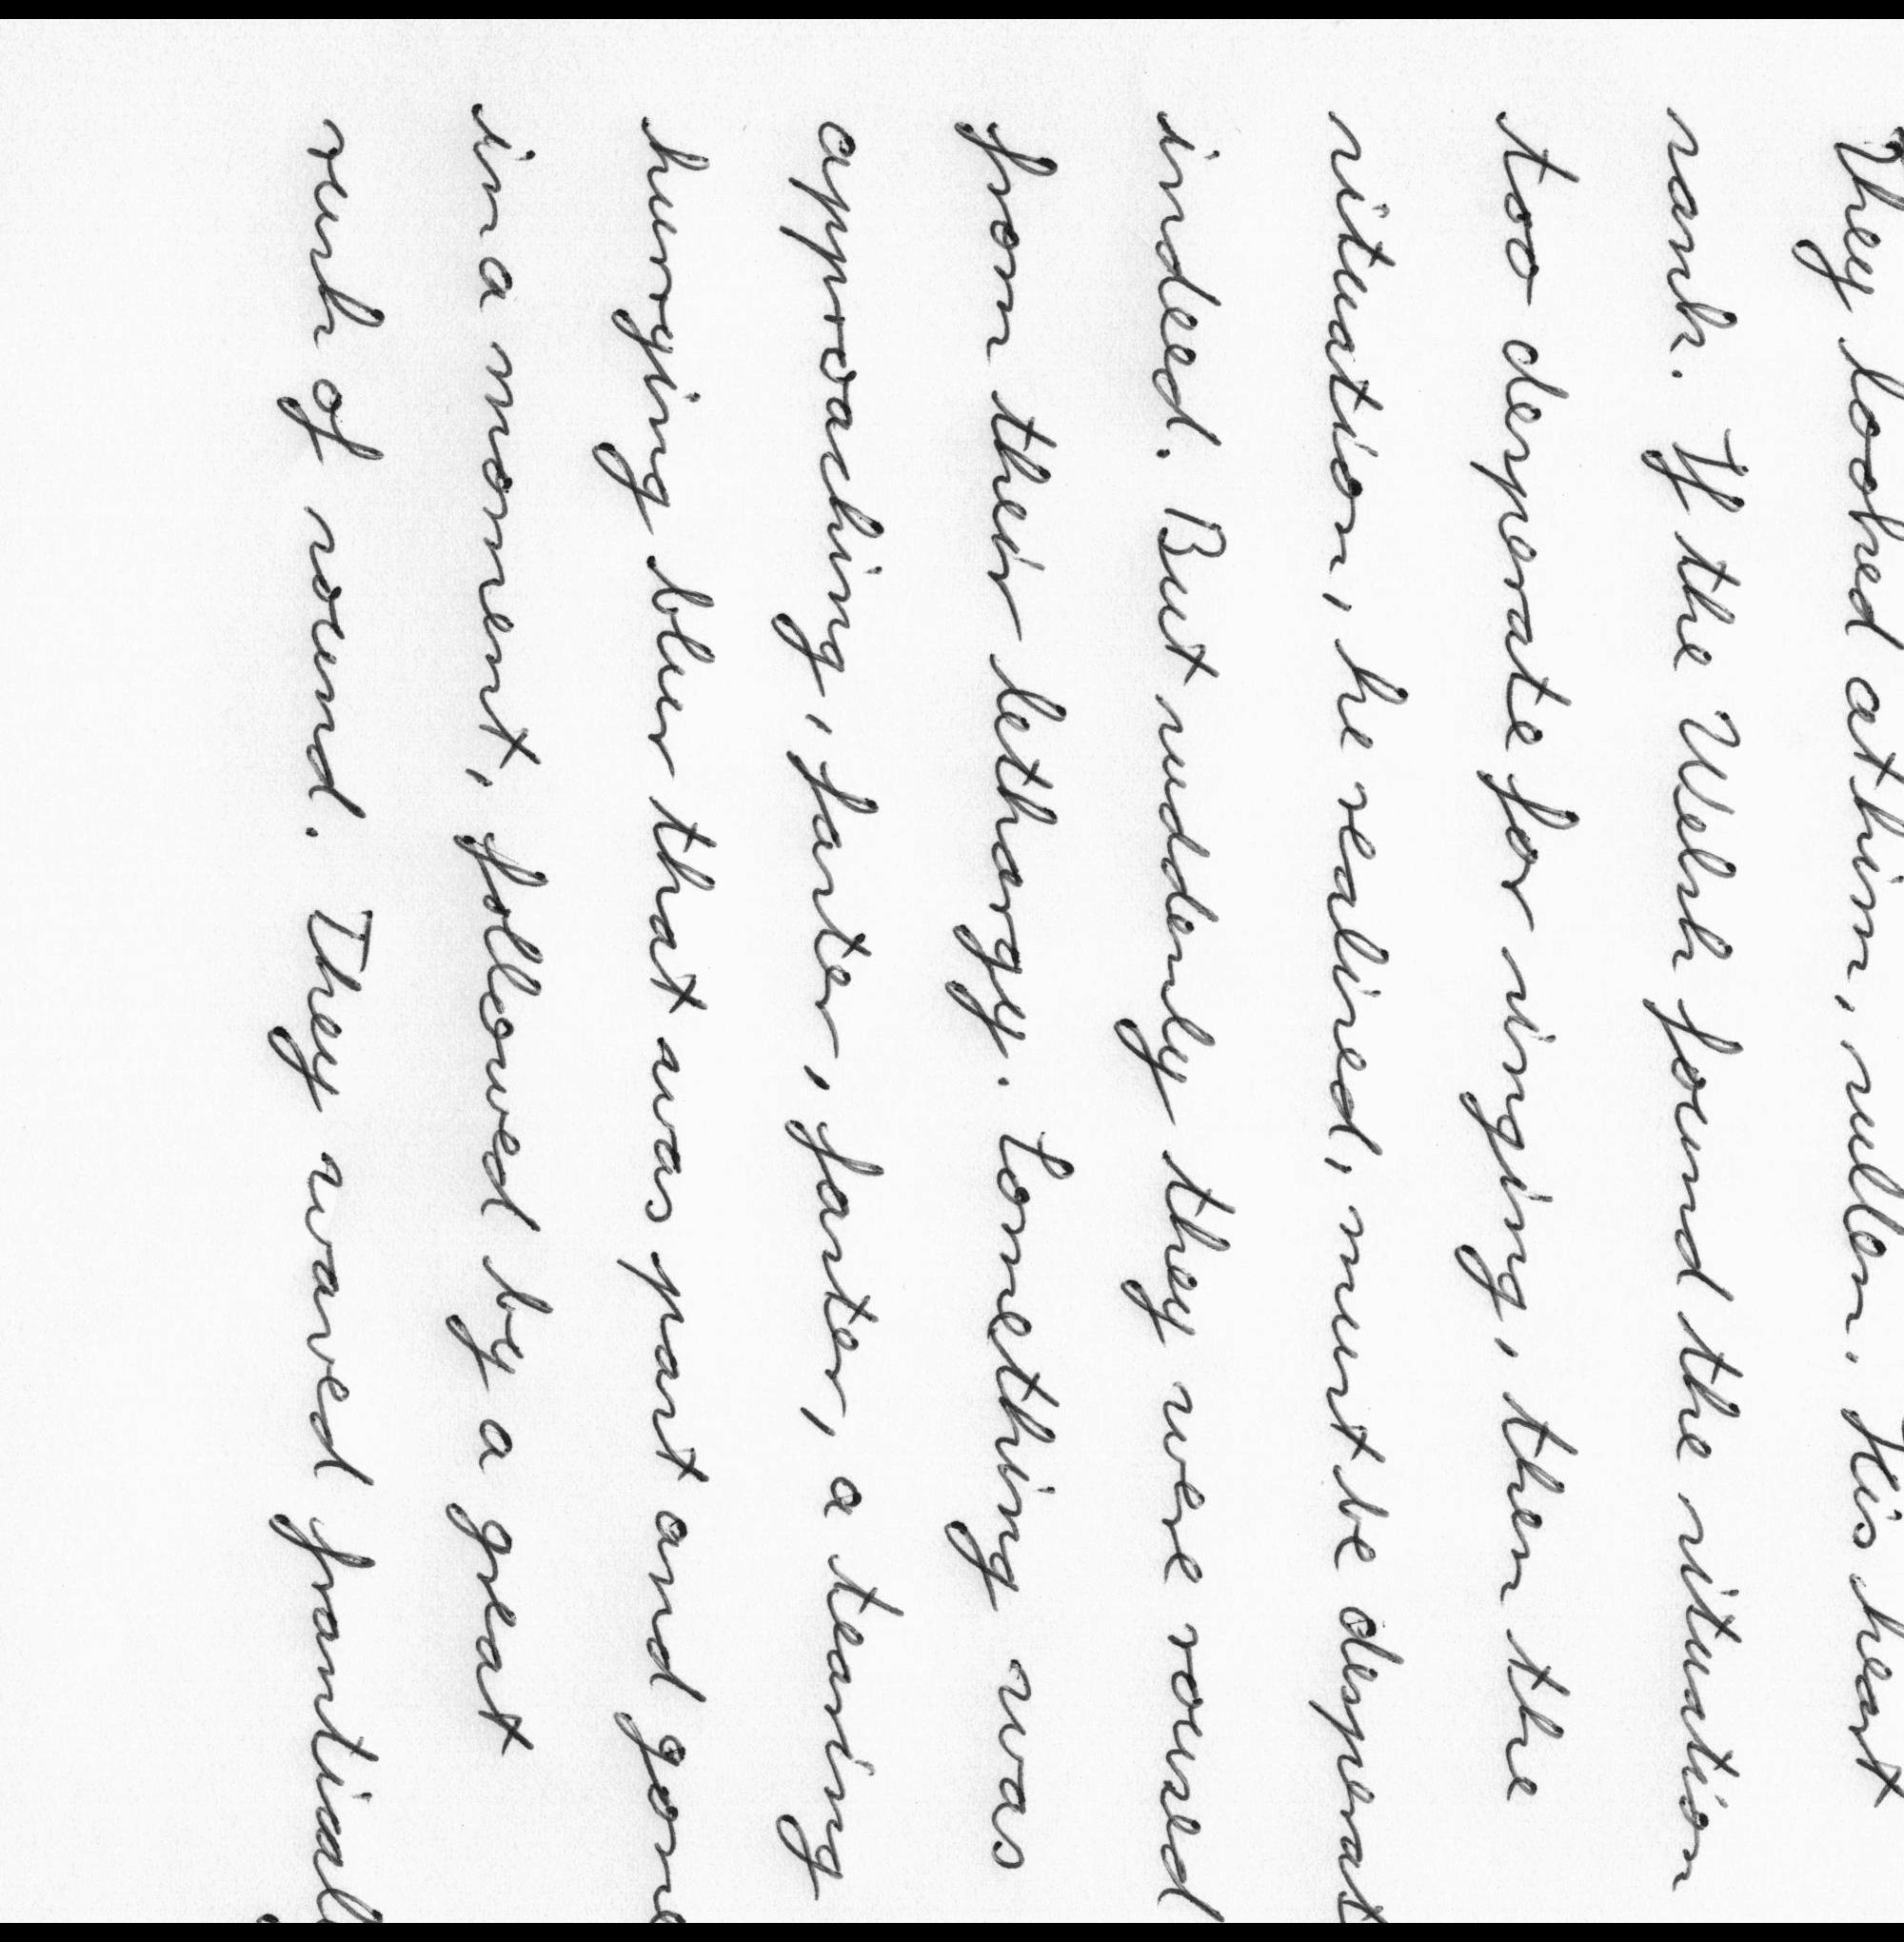 They looked at him, sullen. His heart
sank. If the Welsh found the situation
too desperate for singing, then the
situation, he realised, must be desperat
indeed. But suddenly they were roused
from their lethargy. Something was
approaching, faster, faster, a tearing
hurrying blur that was past and gone
in a moment, followed by a great
rush of sound. They waved frantical